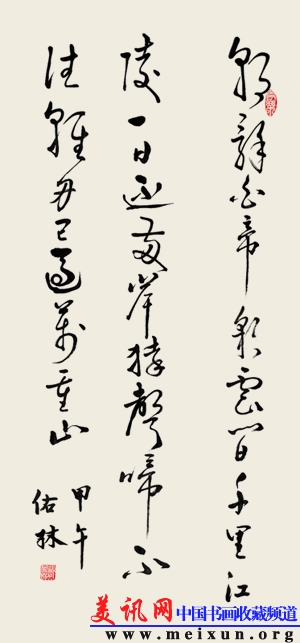 朝辭白帝彩雲間千里江
陵一日還兩岸猿聲啼不
住輕舟已過萬重山
甲午
佑林
美讯网 中国书画收藏频道
www.meixun.org